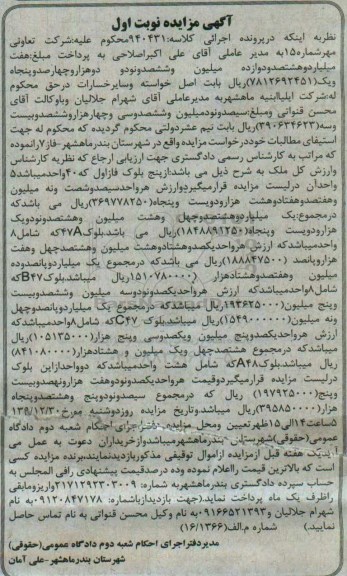 آگهی مزایده نوبت اول
نظریه اینکه درپرونده اجرائی کلاسه:۹۴۰۴۳۱محکوم علیه:شرکت تعاونی
مهرشماره۱۵به مدیر عاملی آقای علی اکبراصلاحی به پرداخت مبلغ:هفت
میلیاردوهشتصدودوازده میلیون وششصدونودو دوهزاروچهارصدوپنجاه
ویک(۷۸۱۲۶۹۲۴۵۱)ریال بابت اصل خواسته وسایرخسارات درحق محکوم
له:شرکت ایلیاابنیه ماهشهربه مدیرعاملی آقای شهرام جلالیان وباوکالت آقای
محسن قنواتی ومبلغ:سیصدونودمیلیون وششصدوسی وچهارهزاروششصدوبیست
وسه(۳۹۰۶۳۴۶۲۳)ریال بابت نیم عشردولتی محکوم گردیده که محکوم له جهت
استیفای مطالبات خوددرخواست مزایده واقع در شهرستان بندرماهشهر-فاز۷رانموده
که مراتب به کارشناس رسمی دادگستری جهت ارزیابی ارجاع که نظریه کارشناس
وارزش کل ملک به شرح ذیل می باشد:ازپنج بلوک فازاول که۴۰واحدمیباشد۵
واحدآن درلیست مزایده قرارمیگیردوارزش هرواحدسیصدوشصت ونه میلیون
وهفتصدوهفتادوهشت هزارودویست وپنجاه(۳۶۹۷۷۸۲۵۰)ریال می باشدکه
درمجموع:یک میلیاردوهشتصدوچهل وهشت میلیون وهشتصدونودویک
هزارودویست وپنجاه(۱۸۴۸۸۹۱۲۵۰)ریال می باشد.بلوک۴۷Aکه شامل۸
واحدمیباشدکه ارزش هرواحدیکصدوهشتادوهشت میلیون وهشتصدوچهل وهفت
هزاروپانصد (۱۸۸۸۴۷۵۰۰)ریال می باشدکه درمجموع یک میلیاردوپانصدوده
میلیون وهفتصدوهشتادهزار (۱۵۱۰۷۸۰۰۰۰)ریال میباشد.بلوک۴۷Bکه
شامل۸واحدمیباشدکه ارزش هرواحدیکصدونودوسه میلیون وششصدوبیست
وپنج میلیون(۱۹۳۶۲۵۰۰۰)ریال میباشدکه درمجموع یک میلیاردوپانصدوچهل
ونه میلیون(۱۵۴۹۰۰۰۰۰۰)ریال میباشد.بلوک ۴۷Cکه شامل۸واحدمیباشدکه
ارزش هرواحدیکصدوپنج میلیون ویکصدوسی وپنج هزار(۱۰۵۱۳۵۰۰۰)ریال
میباشدکه درمجموع هشتصدوچهل ویک میلیون و هشتادهزار(۸۴۱۰۸۰۰۰۰)
ریال میباشد.بلوک۴۸Aکه شامل هشت واحدمیباشدکه دوواحدازاین بلوک
درلیست مزایده قرارمیگیردوقیمت هرواحدیکصدونودوهفت هزارونهصدوبیست
وپنج (۱۹۷۹۲۵۰۰۰) ریال که درمجموع سیصدونودوپنج وهشتصدوپنجاه
هزار(۳۹۵۸۵۰۰۰۰)ریال میباشد.وتاریخ مزایده روزدوشنبه مورخ
ساعت۱۴الی۱۵ظهرتعیین ومحل مزایده دفتراجرای احکام شعبه دوم دادگاه
عمومی(حقوقی)شهرستان بندرماهشهرمیباشدوازخریداران دعوت به عمل می
آیدیک هفته قبل ازمزایده ازاموال توقیفی مذکوربازدیدنمایند.برنده مزایده کسی
است که بالاترین قیمت رااعلام نموده وده درصدقیمت پیشنهادی رافی المجلس به
حساب سپرده دادگستری بندرماهشهربه شماره: ۲۱۷۱۲۹۲۳۰۳۰۰۹واریزومابقی
راظرف یک ماه پرداخت نماید.(جهت بازدیدازباشماره: ۰۹۱۲۰۸۴۷۱۷۸به نام
شهرام جلالیان و۰۹۱۶۶۵۲۱۳۹۳به نام وکیل محسن قنواتی به نام تماس حاصل
نمایید.) شماره م.الف(۱۶/۱۳۶۶)
مدیردفتراجرای احکام شعبه دوم دادگاه عمومی(حقوقی)
شهرستان بندرماهشهر-علی آمان